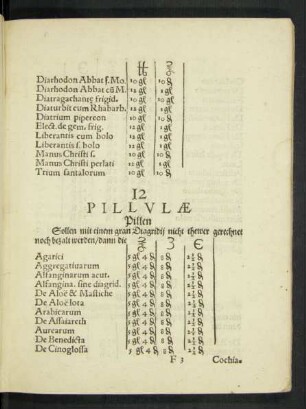 ℔ ℥
Diarhodon Abbat ſ. Mo. 10 gl 10 ₰
Diarhodon Abbat cũ M. 12 gl 1 gl
Diatragachantę frigid. 10 gl 10 ₰
Diaturbit cum Rhabarb. 12 gl 1 gl
Diatrium pipereon 10 gl 10 ₰
Elect. de gem. frig. 12 gl 1 gl
Liberantis cum bolo 12 gl 1 gl
Liberantis ſ. bolo 12 gl 1 gl
Manus Chriſti ſ. 10 gl 10 ₰
Manus Chriſti perlati 12 gl 1 gl
Trium ſantalorum 10 gl 10 ₰
12
PILLVLÆ
Pillen
Sollen mit einem gran Diagridij nicht thewer gerechnet
noch bezalt werden/ dann die ℥ ʒ Є
Agarici 5 gl 4 ₰ 8 ₰ 2½ ₰
Aggregatiuarum 5 gl 4 ₰ 8 ₰ 2½ ₰
Alfanginarum acut. 5 gl 4 ₰ 8 ₰ 2½ ₰
Alfangina. ſine diagrid. 5 gl 4 ₰ 8 ₰ 2½ ₰
De Aloë & Maſtiche 5 gl 4 ₰ 8 ₰ 2½ ₰
De Aloë lota 5 gl 4 ₰ 8 ₰ 2½ ₰
Arabicarum 5 gl 4 ₰ 8 ₰ 2½ ₰
De Aſſaiareth 5 gl 4 ₰ 8 ₰ 2½ ₰
Aurearum 5 gl 4 ₰ 8 ₰ 2½ ₰
De Benedicta 5 gl 4 ₰ 8 ₰ 2½ ₰
De Cinogloſſa 5 gl 4 ₰ 8 ₰ 2½ ₰
F 3 Cochia.